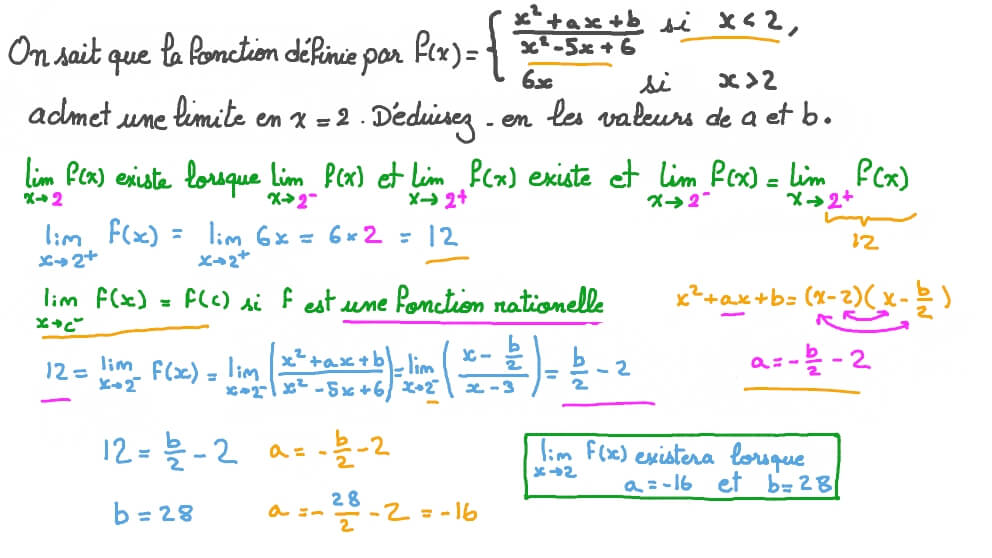 On sait que la fonction définie par f(x) = { (x² + ax + b)/(x² - 5x + 6) si x < 2,
6x si x > 2
admet une limite en x = 2. Déduisez-en les valeurs de a et b.
lim x→2 f(x) existe lorsque lim x→2⁻ f(x) et lim x→2⁺ f(x) existe et lim x→2⁻ f(x) = lim x→2⁺ f(x)
12
lim x→2⁺ f(x) = lim x→2⁺ 6x = 6 × 2 = 12
lim x→c⁻ f(x) = f(c) si f est une fonction rationelle
x² + ax + b = (x - 2)(x - b/2)
12 = lim x→2⁻ f(x) = lim x→2⁻ ((x² + ax + b)/(x² - 5x + 6)) = lim x→2⁻ ((x - b/2)/(x - 3)) = b/2 - 2
a = - b/2 - 2
12 = b/2 - 2 a = - b/2 - 2
b = 28 a = - 28/2 - 2 = -16
lim x→2 f(x) existera lorsque
a = -16 et b = 28